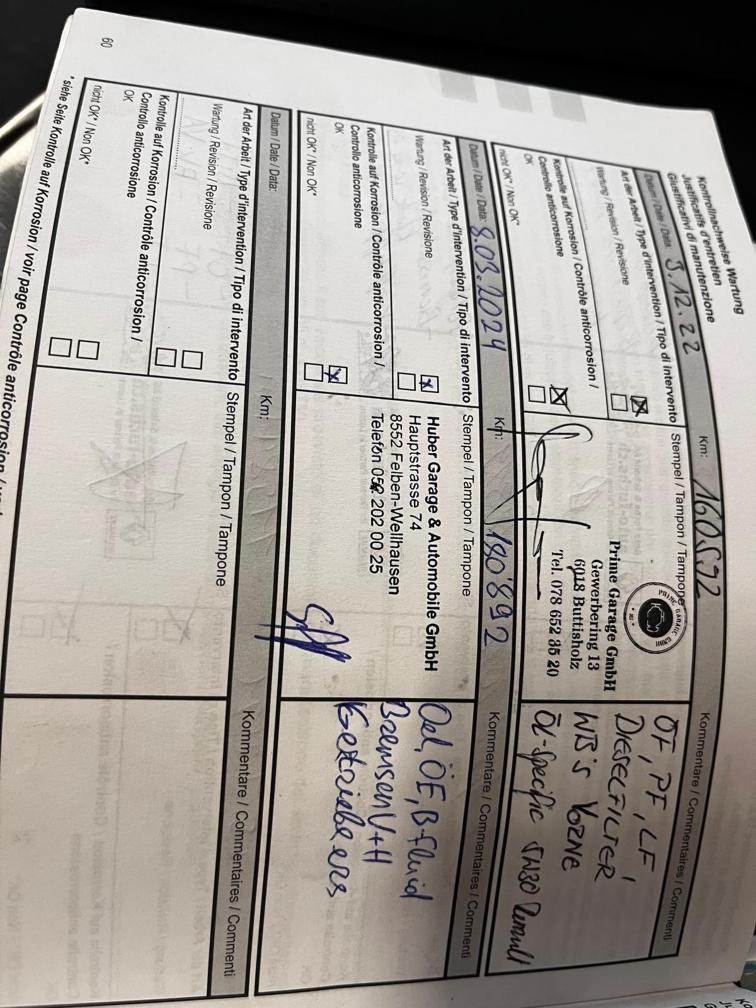 Kontrollnachweise Wartung
Justificatifs d'entretien
Giustificativi di manutenzione
Datum / Date / Data: 3.12.22
Km: 160592
Kommentare / Commentaires / Commenti
Art der Arbeit / Type d'intervention / Tipo di intervento
Stempel / Tampon / Tampone
Wartung / Revision / Revisione
Kontrolle auf Korrosion / Contrôle anticorrosion /
Controllo anticorrosione
OK
nicht OK* / Non OK*
PRIME GARAGE GMBH
Prime Garage GmbH
Gewerbering 13
6018 Buttisholz
Tel. 078 652 35 20
ÖF, PF, LF,
DIESELFILTER
WB's VORNE
Öl-Specific 5W30 Renault
Datum / Date / Data: 8.03.2024
Km: 180'892
Kommentare / Commentaires / Commenti
Art der Arbeit / Type d'intervention / Tipo di intervento
Stempel / Tampon / Tampone
Wartung / Revision / Revisione
Kontrolle auf Korrosion / Contrôle anticorrosion /
Controllo anticorrosione
OK
nicht OK* / Non OK*
Huber Garage & Automobile GmbH
Hauptstrasse 74
8552 Felben-Wellhausen
Telefon 052 202 00 25
Oel, ÖF, B-fluid
Bremsen V+H
Datum / Date / Data:
Km:
Kommentare / Commentaires / Commenti
Art der Arbeit / Type d'intervention / Tipo di intervento
Stempel / Tampon / Tampone
Wartung / Revision / Revisione
Kontrolle auf Korrosion / Contrôle anticorrosion /
Controllo anticorrosione
OK
nicht OK* / Non OK*
* siehe Seite Kontrolle auf Korrosion / voir page Contrôle anticorrosion /
60